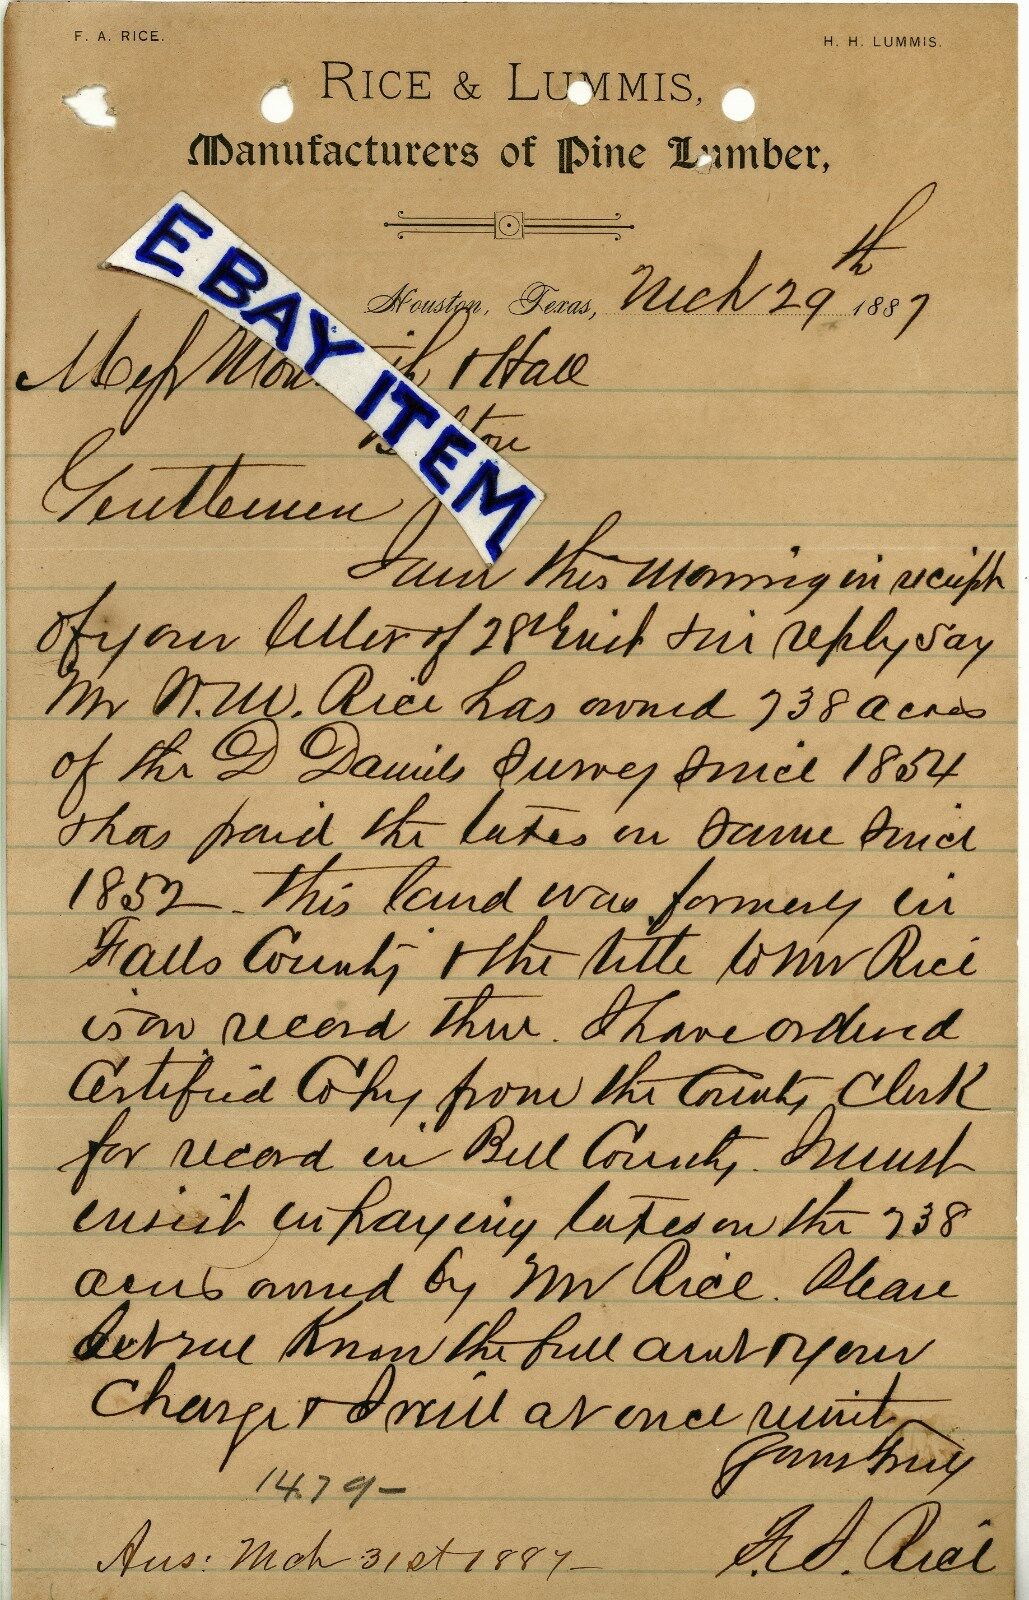 F. A. RICE.
H. H. LUMMIS.
RICE & LUMMIS,
Manufacturers of Pine Lumber,
Houston, Texas, Mch 29th 1887
Mess & Hall
Gentlemen
EBAY ITEM
I am this morning in receipt
of your letter of 28th inst & in reply say
Mr W. M. Rice has owned 738 acres
of the D Daniels Survey since 1854
& has paid the taxes on same since
1852 - this land was formerly in
Falls County & the title to Mr Rice
is on record there. I have ordered
Certified Copy from the County Clerk
for record in Bell County. I must
insist in paying taxes on the 738
acres owned by Mr Rice. Please
let me know the full amt & your
Charge & I will at once remit
Yours truly
1479-
F. A. Rice
Ans: Mch 31st 1887-